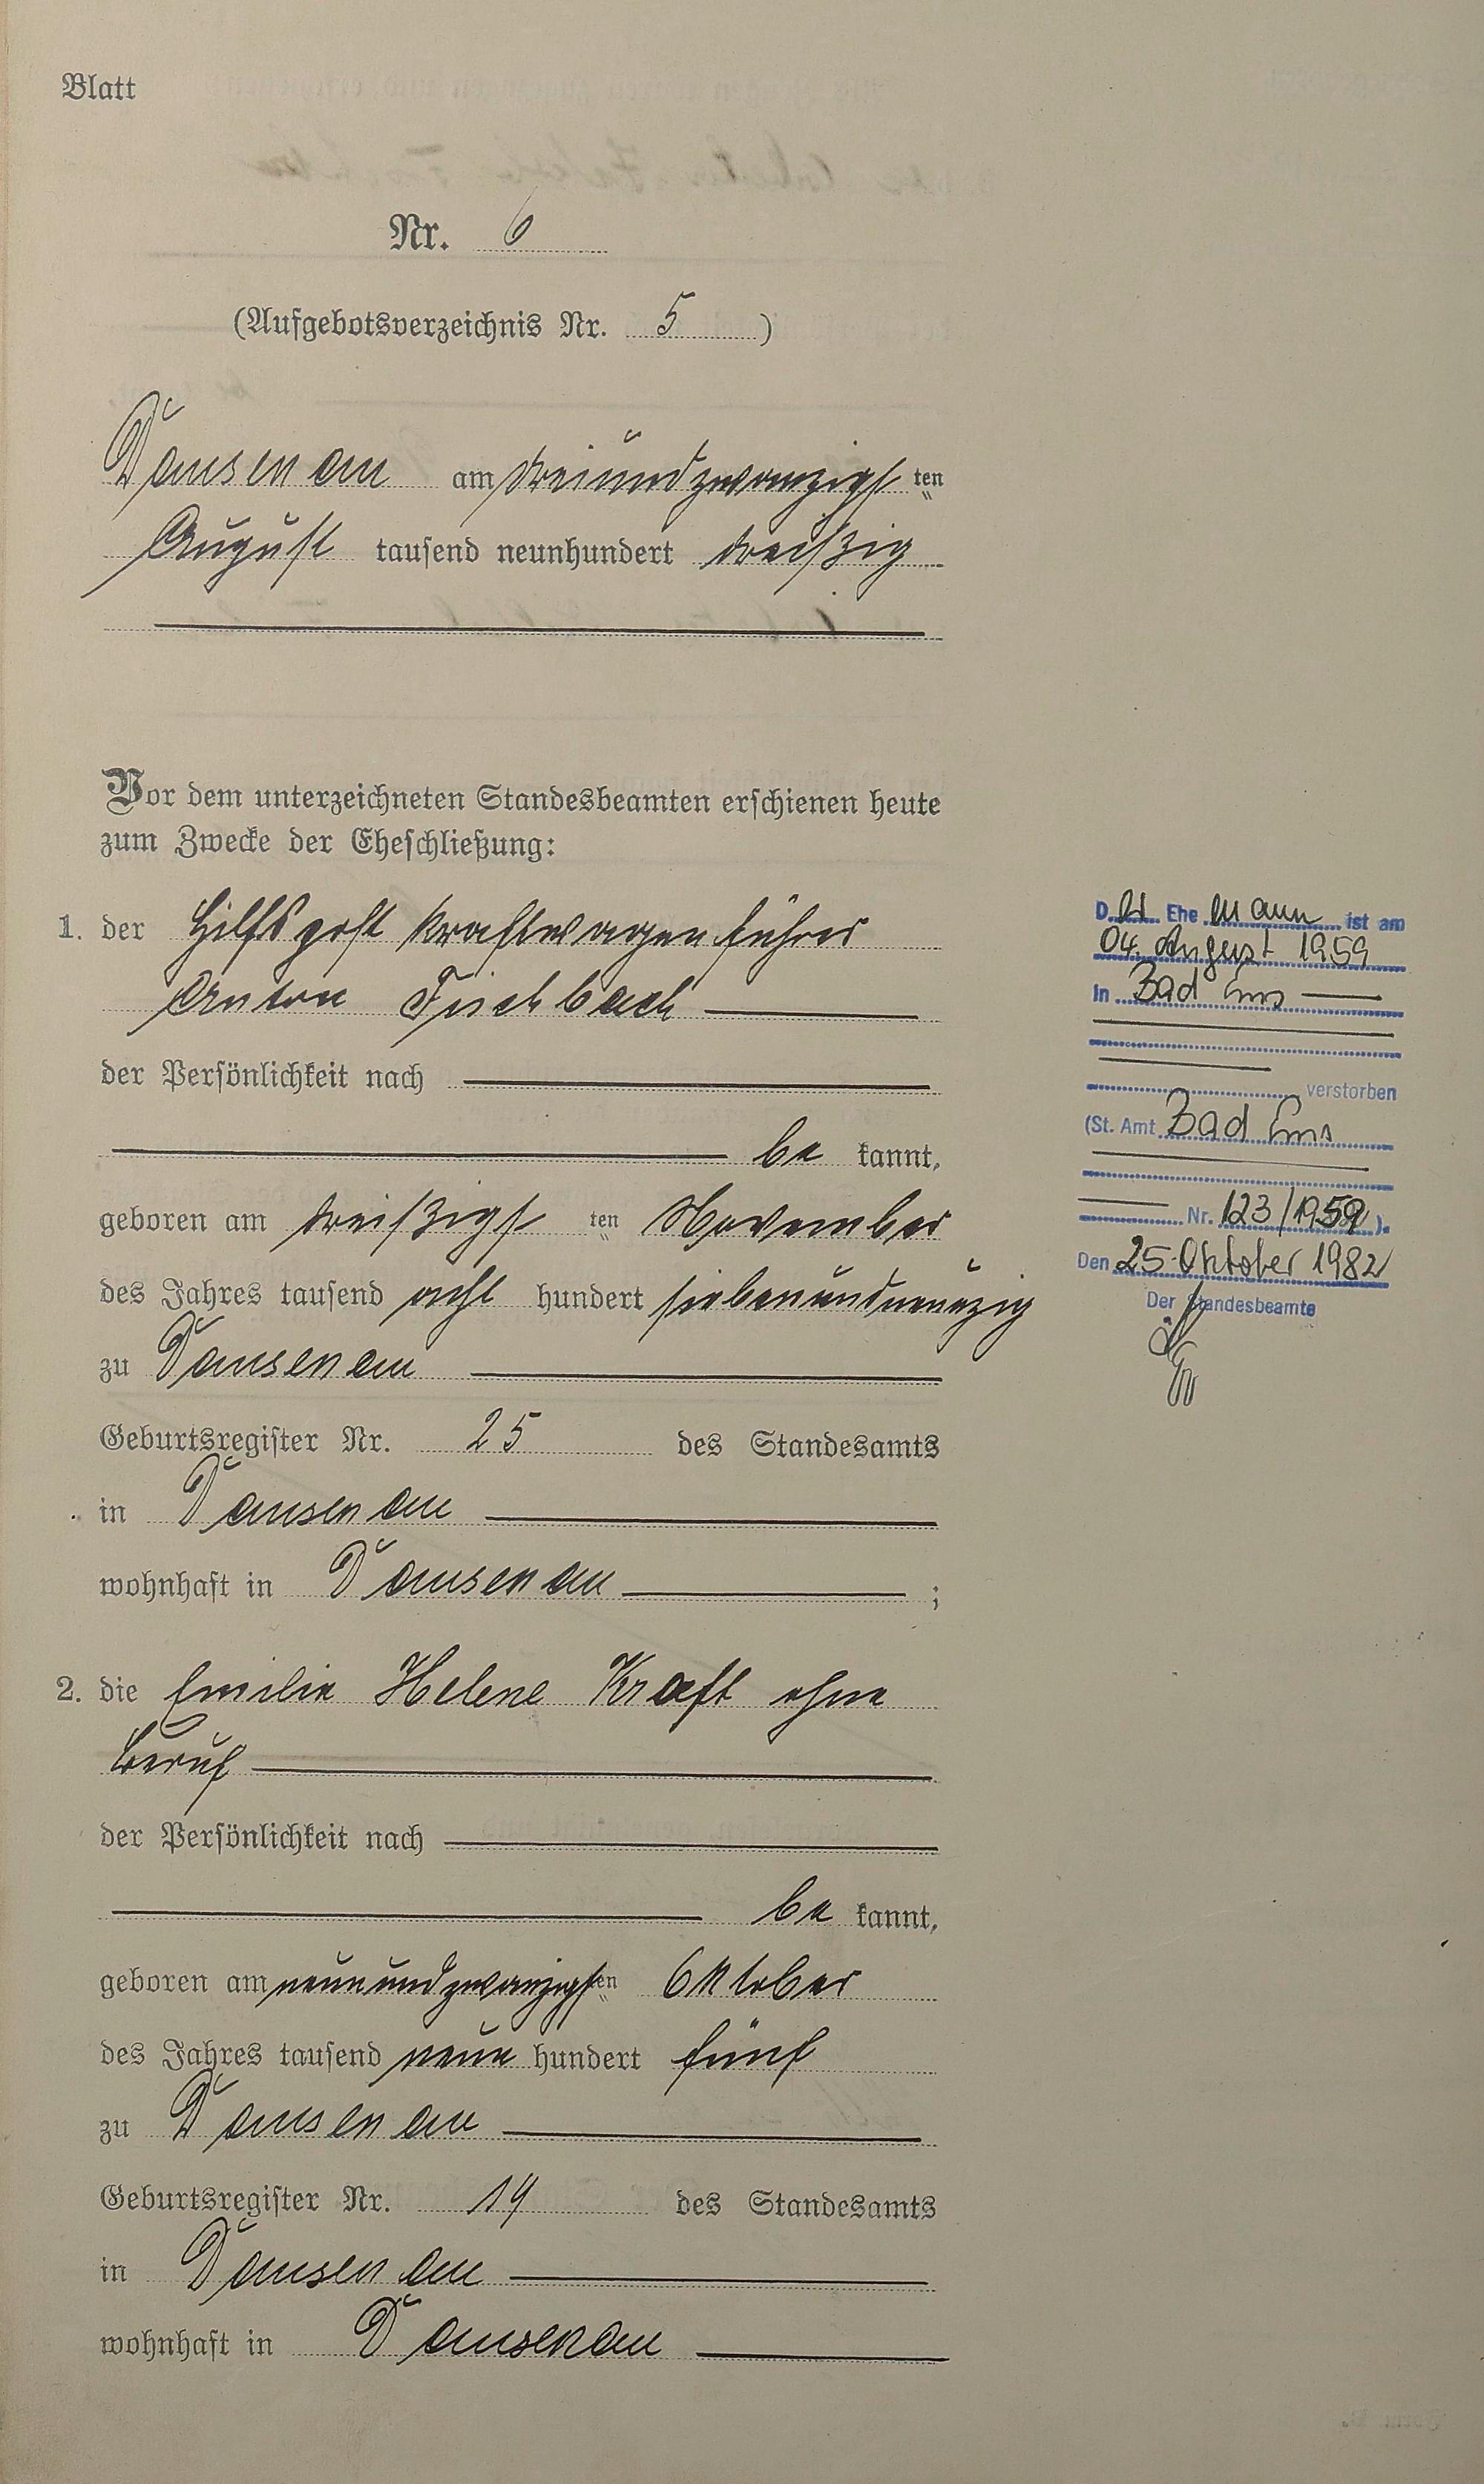 Blatt
Nr. 6
(Aufgebotsverzeichnis Nr. 5)
Dausenau am dreiundzwanzigsten
August tausend neunhundert dreißig
Vor dem unterzeichneten Standesbeamten erschienen heute
zum Zwecke der Eheschließung:
1. der Hilfspostkraftwagenführer
Anton Fischbach
der Persönlichkeit nach
be kannt,
geboren am dreißigsten November
des Jahres tausend acht hundert siebenundneunzig
zu Dausenau
Geburtsregister Nr. 25 des Standesamts
in Dausenau
wohnhaft in Dausenau ;
2. die Emilie Helene Kraft ohne
Beruf
der Persönlichkeit nach
be kannt,
geboren am neunundzwanzigsten Oktober
des Jahres tausend neun hundert fünf
zu Dausenau
Geburtsregister Nr. 19 des Standesamts
in Dausenau
wohnhaft in Dausenau
D.er Ehe mann ist am
04. August 1959
in Bad Ems
verstorben
(St. Amt Bad Ems
Nr. 123/1959).
Den 25. Oktober 1982
Der Standesbeamte